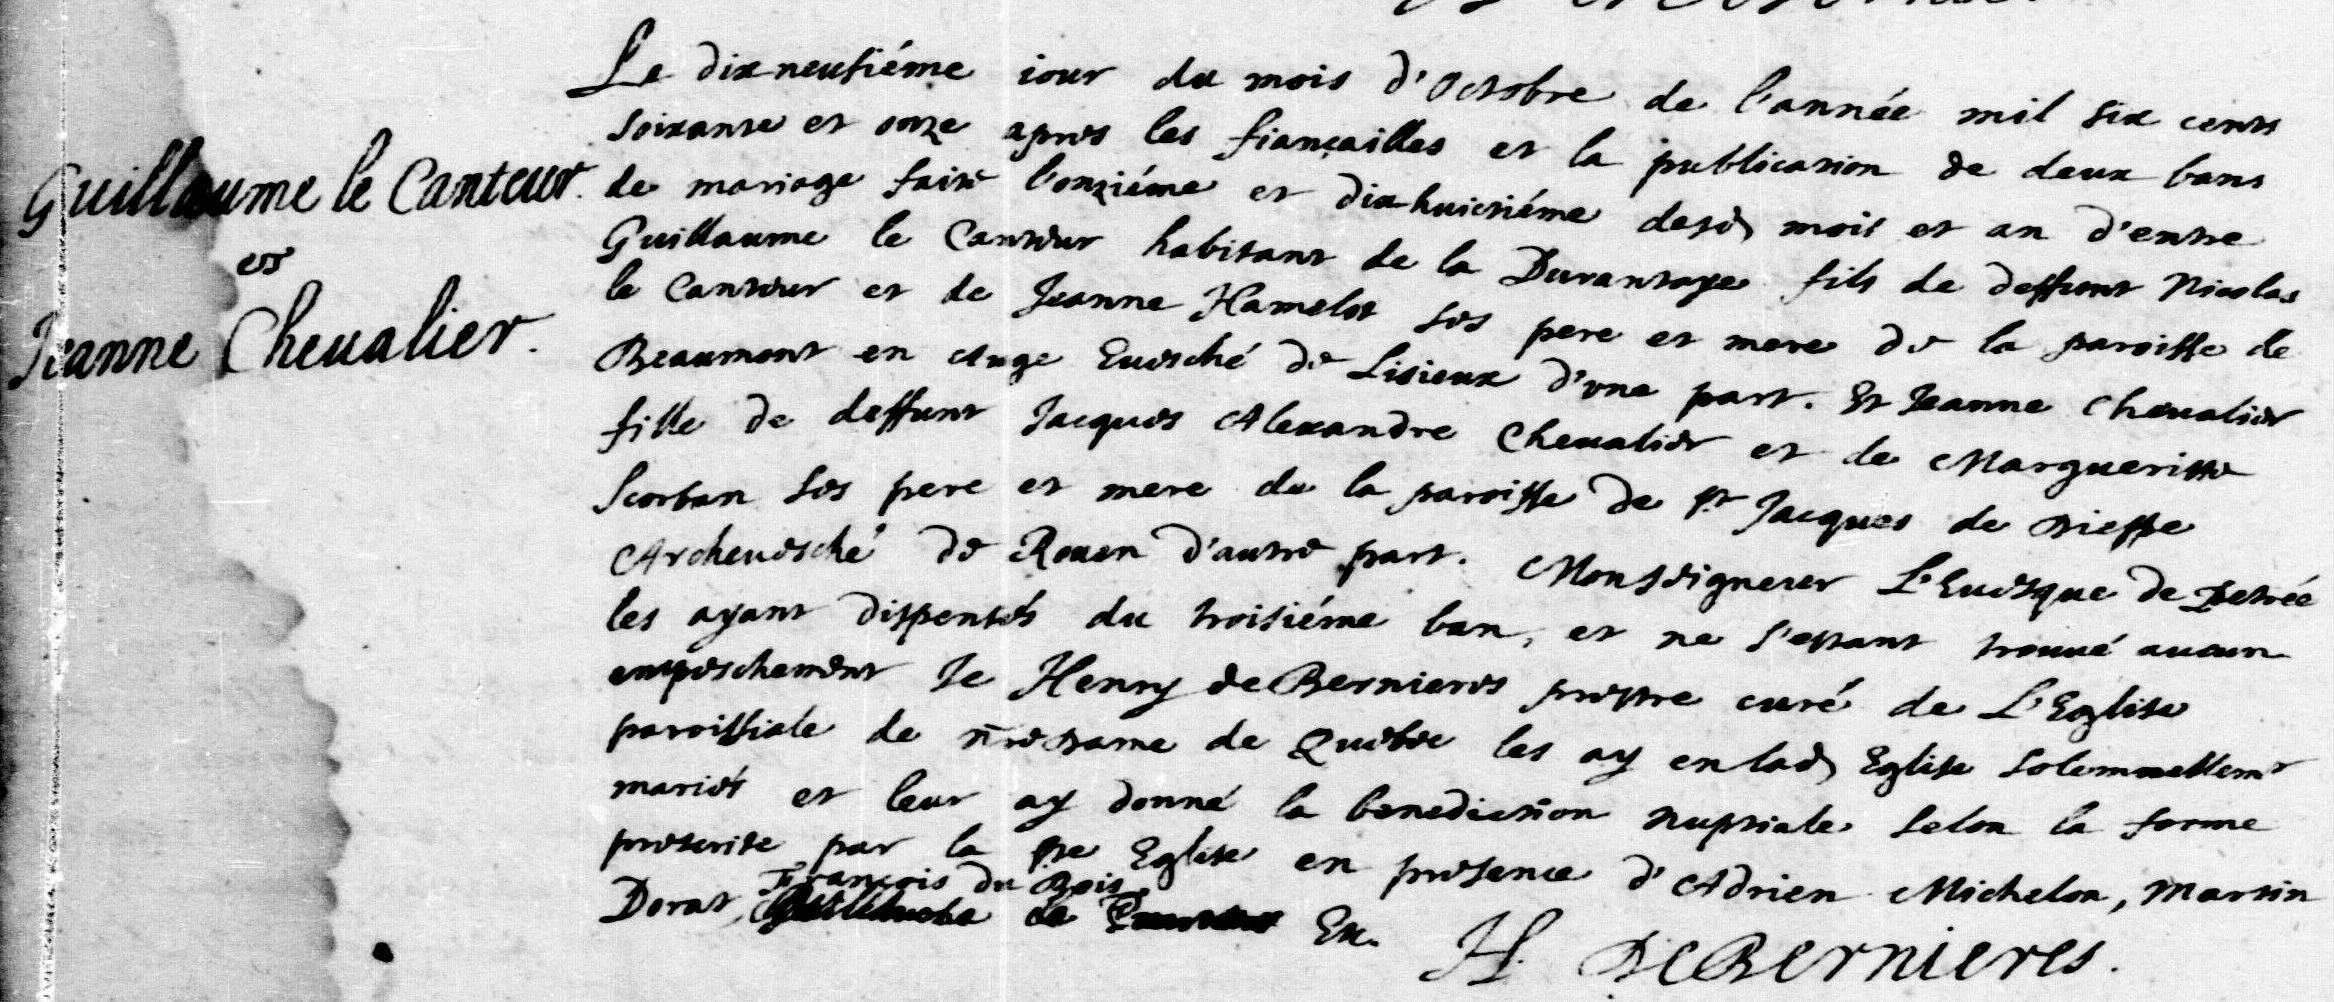 Guillaume le Canteur.
et
Jeanne Cheualier.
Le dixneufiéme iour du mois d'Octobre de l'année mil six cents
soixante et onze apres les fiançailles et la publication de deux bans
de mariage faite l'onziéme et dix-huictiéme desd mois et an d'entre
Guillaume le Canteur habitant de la Durantaye fils de deffunt Nicolas
le Canteur et de Jeanne Hamelot ses pere et mere de la paroisse de
Beaumont en Auge Euesché de Lisieux d'vne part. Et Jeanne Cheualier
fille de deffunt Jacques Alexandre Cheualier et de Margueritte
Scorban ses pere et mere de la paroisse de St Jacques de Dieppe
Archeuesché de Rouen d'autre part. Monseigneur L'Euesque de Petrée
les ayant dispensés du troisiéme ban, et ne s'estant trouué aucun
empeschement Je Henry de Bernieres prestre curé de L'Eglise
paroissiale de nre Dame de Quebec les ay en lad Eglise solemnellemt
mariés et leur ay donné la benediction nuptiale selon la forme
prescrite par la Ste Eglise en presence d'Adrien Michelon, Martin
François du Bois
Dorat, de Etc.
H. DeBernieres.